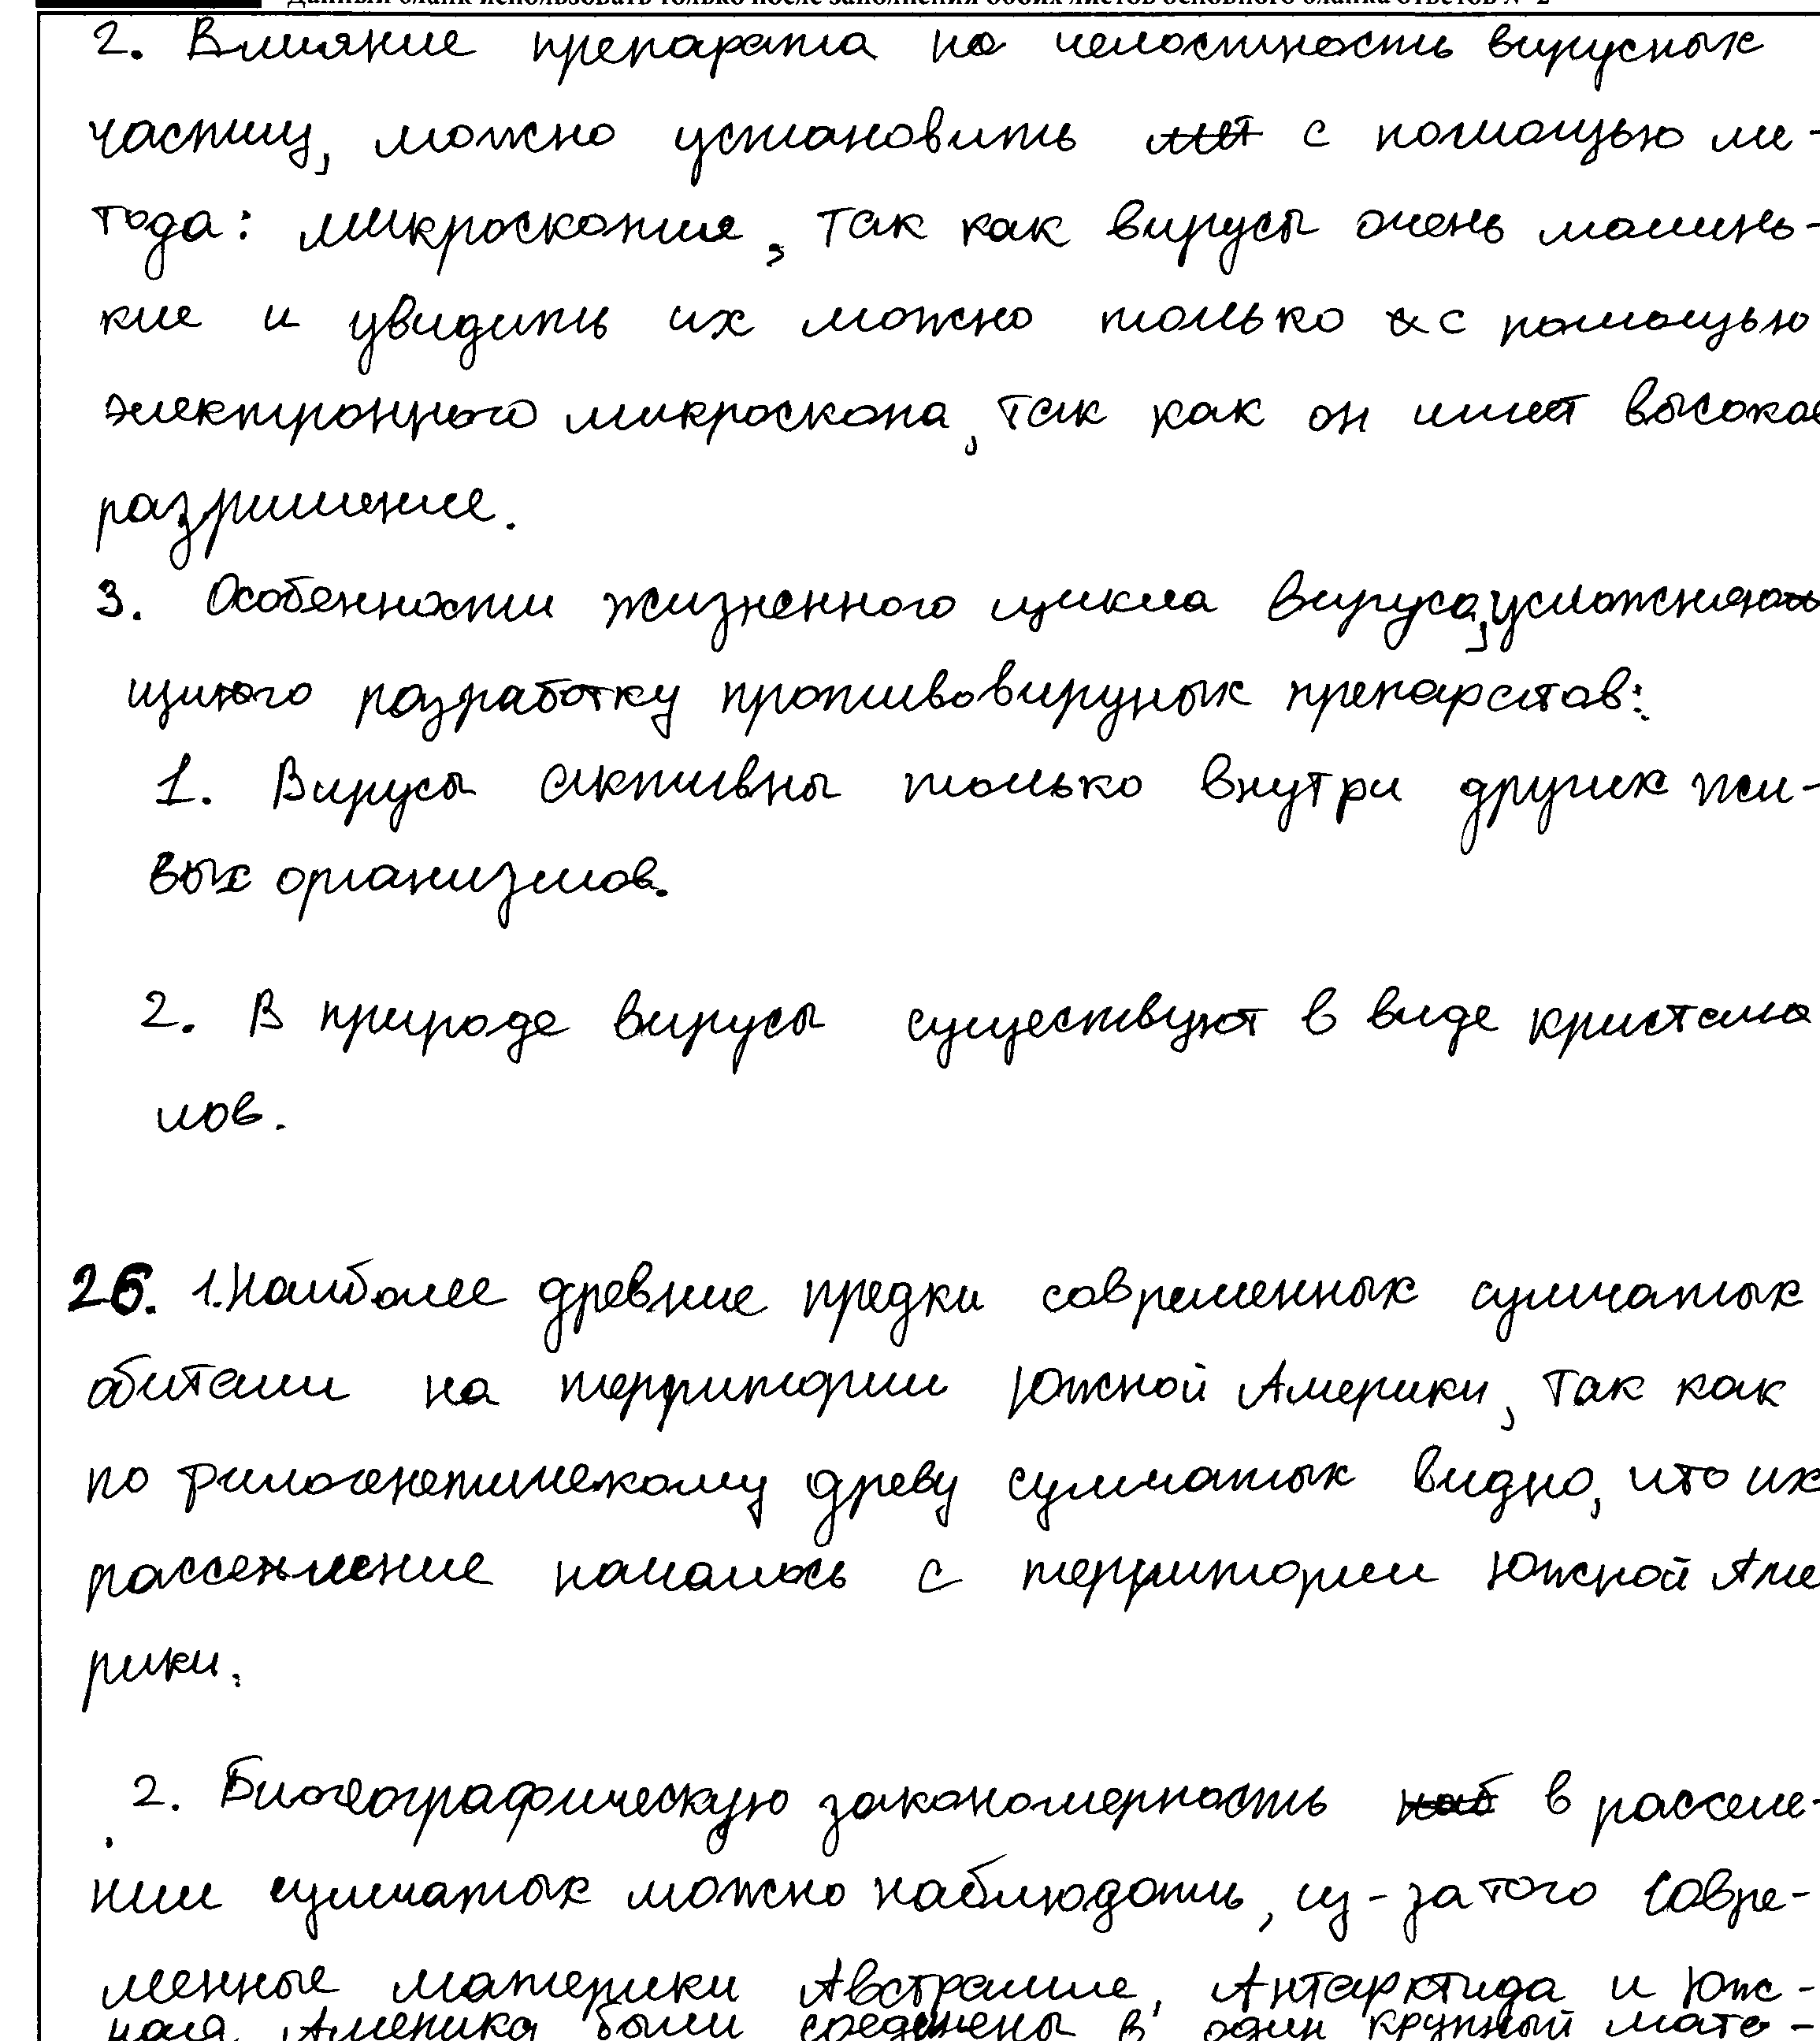 Данный бланк использовать только после заполнения обоих листов основного бланка ответов № 2
2. Влияние препарата на целостность вирусных
частиц, можно установить мет с помощью ме-
тода: микроскопия, так как вирусы очень малень-
кие и увидить их можно только с помощью
электронного микроскопа, так как он имет высокое
разришение.
3. Особенности жизненного цикла вируса, усложняю
щиюго разработку противовируных препаратов:
1. Вирусы активны только внутри других жи-
вых организмов.
2. В природе вирусы существуют в виде кристала
лов.
26. 1. Наиболее древние предки современных сумчатых
обитали на территории Южной Америки, так как
по филогенетичекому древу сумчатых видно, что их
рассенление началось с территории Южной Аме
рики.
2. Биогеографическую закономерность наб в расселе-
нии сумчатых можно наблюдать, из-за того совре-
менные материки Австралие, Антарктида и Юж-
ная Америка были соединены в один крупный мате-